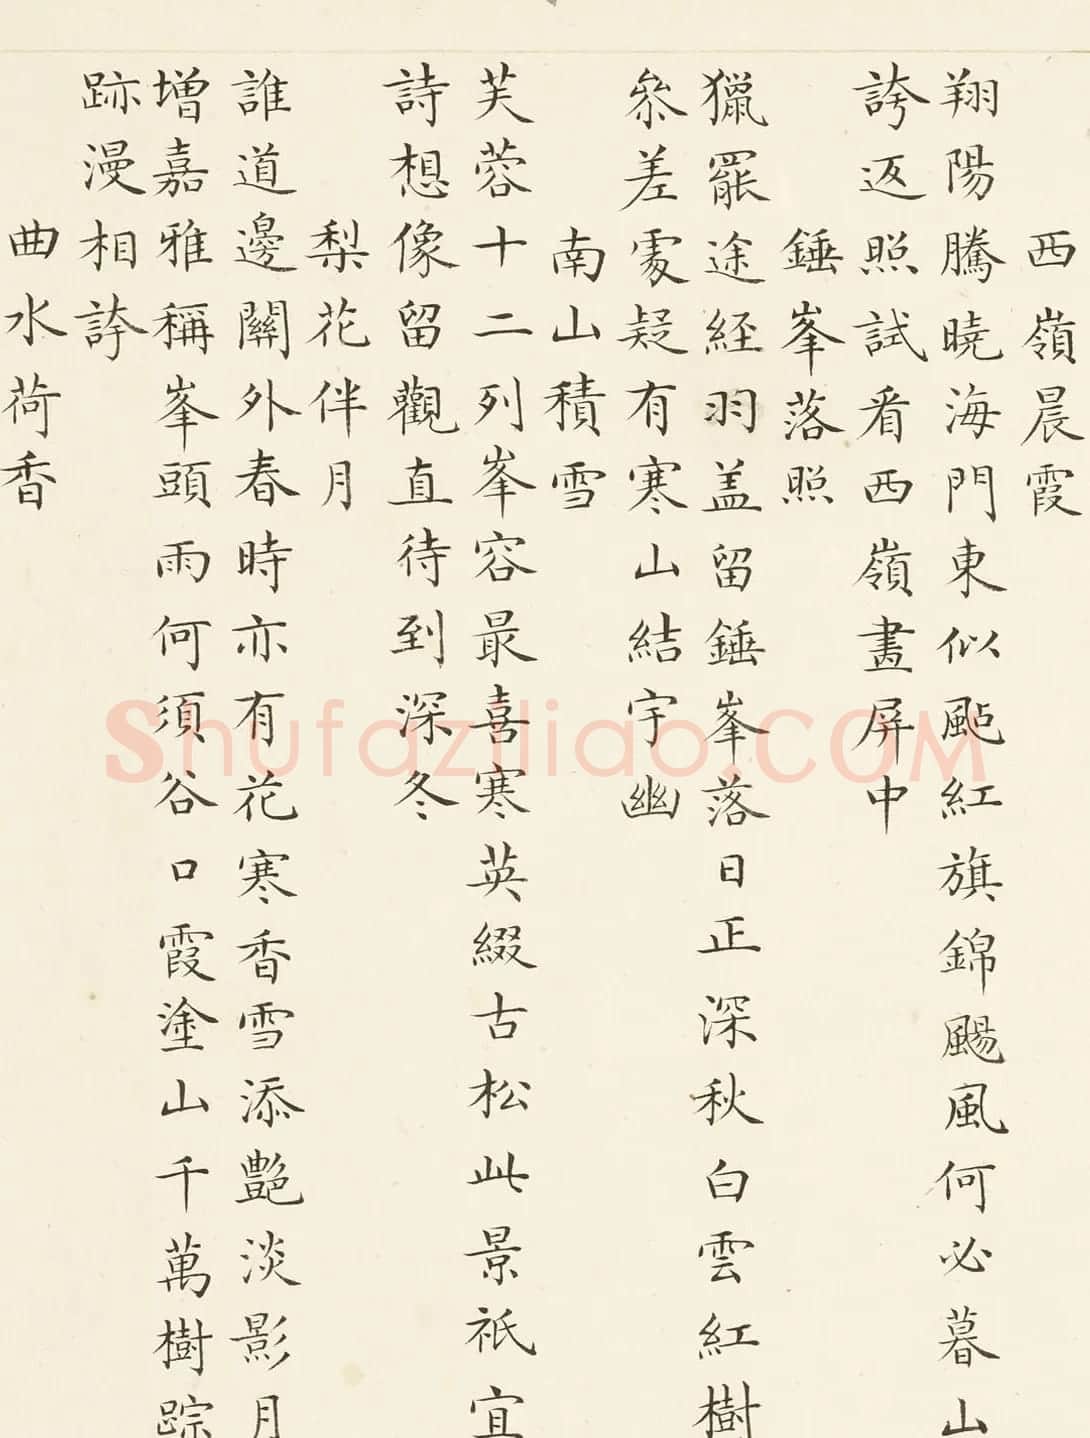 西嶺晨霞
翔陽騰曉海門東似颭紅旗錦颺風何必暮山
誇返照試看西嶺畫屏中
錘峯落照
獵罷途経羽盖留錘峯落日正深秋白雲紅樹
叅差䖏疑有寒山結宇幽
南山積雪
芙蓉十二列峯容最喜寒英綴古松此景祇宜
詩想像留觀直待到深冬
梨花伴月
誰道邊關外春時亦有花寒香雪添艷淡影月
增嘉雅稱峯頭雨何須谷口霞塗山千萬樹踪
跡漫相誇
曲水荷香
Shufaziliao.COM